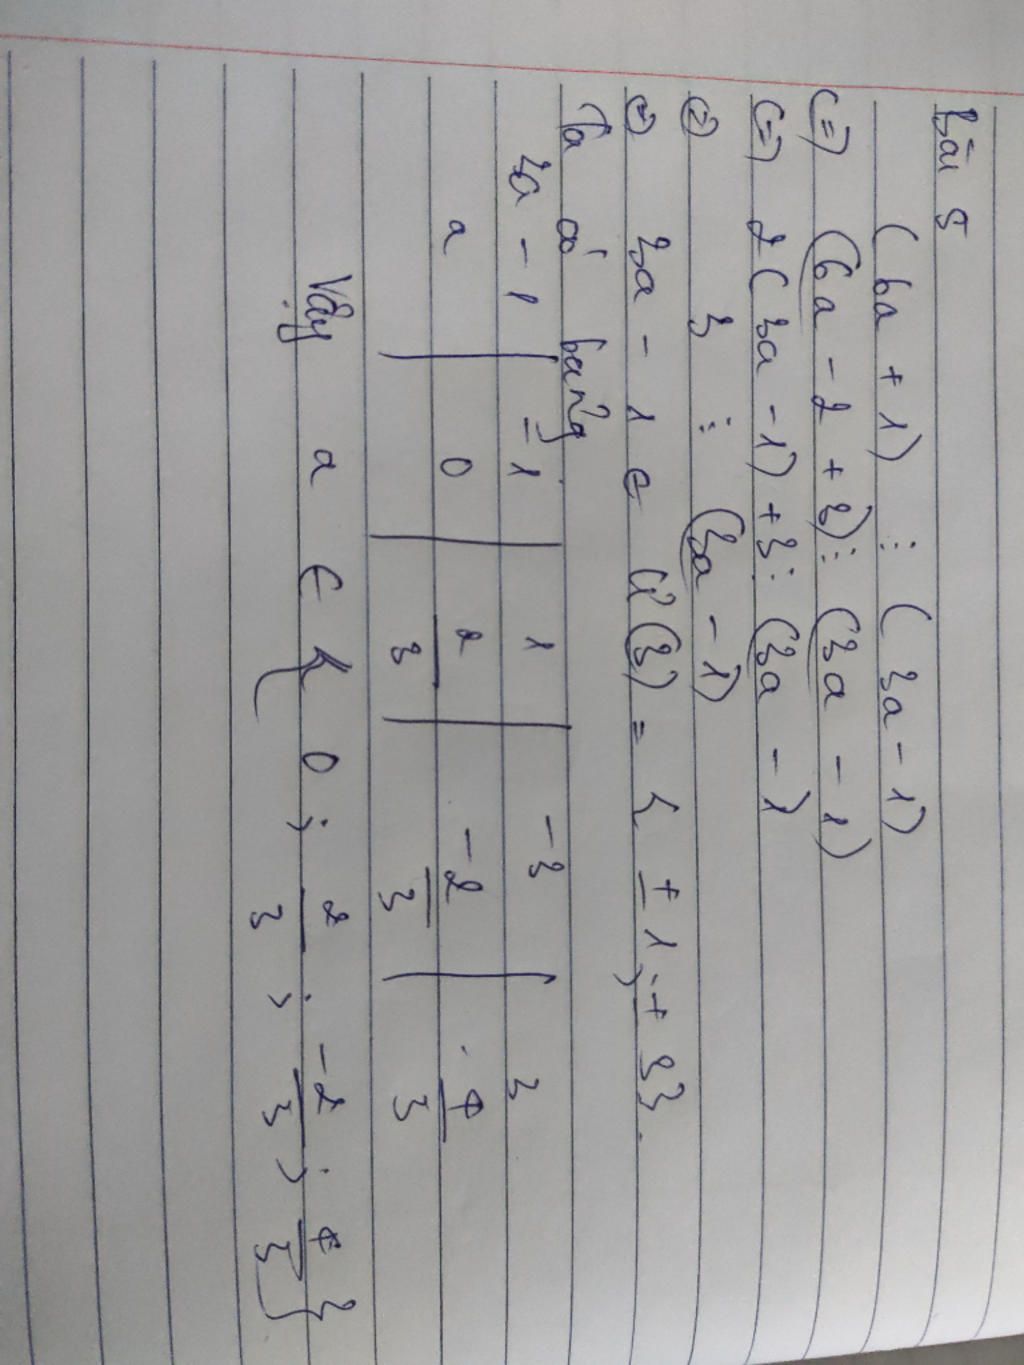 Bài 5
(6a + 1) ⋮ (3a - 1)
(=) (6a - 2 + 3) ⋮ (3a - 1)
(=) 2(3a - 1) + 3 ⋮ (3a - 1)
(=) 3 ⋮ (3a - 1)
(=) 3a - 1 ∈ Ư(3) = { ± 1 ; ± 3}.
Ta có bảng
3a - 1 | -1 | 1 | -3 | 3
a | 0 | 2/3 | -2/3 | 4/3
Vậy a ∈ { 0 ; 2/3 ; -2/3 ; 4/3 }